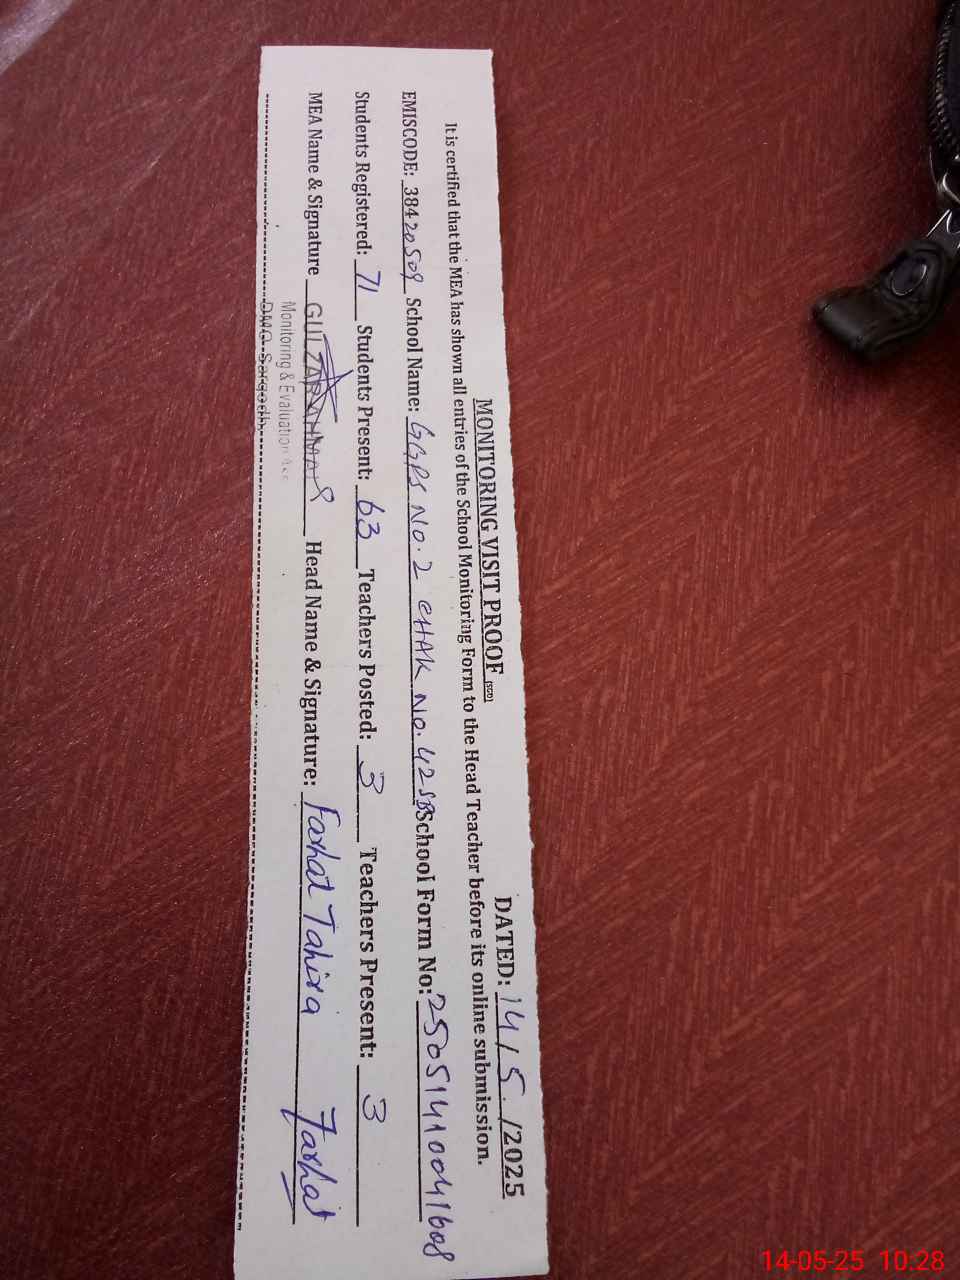 MONITORING VISIT PROOF (SGD)
DATED: 14/5./2025
It is certified that the MEA has shown all entries of the School Monitoring Form to the Head Teacher before its online submission.
EMISCODE: 38420509 School Name: GGPS NO.2 CHAK NO.42 SB School Form No: 25051410041608
Students Registered: 71 Students Present: 63 Teachers Posted: 3 Teachers Present: 3
MEA Name & Signature GULZAR AHMAD Head Name & Signature: Farhat Tahira Farhat
Monitoring & Evaluation
DMO Sargodh
14-05-25 10:28